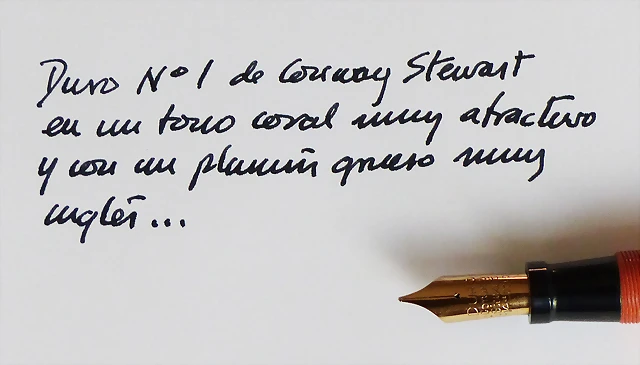 Duro Nº 1 de Conway Stewart
en un tono coral muy atractivo
y con un plumín grueso muy
inglés...
DURO